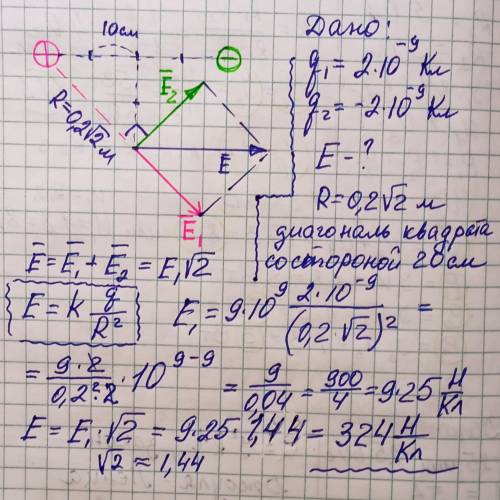 10см
Дано:
q₁ = 2·10⁻⁹ Кл
q₂ = -2·10⁻⁹ Кл
E - ?
R = 0,2√2 м
диагональ квадрата
со стороной 20см
⊕
⊖
R=0,2√2 м
E̅₂
E̅
E̅₁
E̅ = E̅₁ + E̅₂ = E₁√2
E = k q/R²
E₁ = 9·10⁹ 2·10⁻⁹/(0,2·√2)² =
= 9·2/0,2²·2 · 10⁹⁻⁹ = 9/0,04 = 900/4 = 9·25 Н/Кл
E = E₁·√2 = 9·25·1,44 = 324 Н/Кл
√2 ≈ 1,44